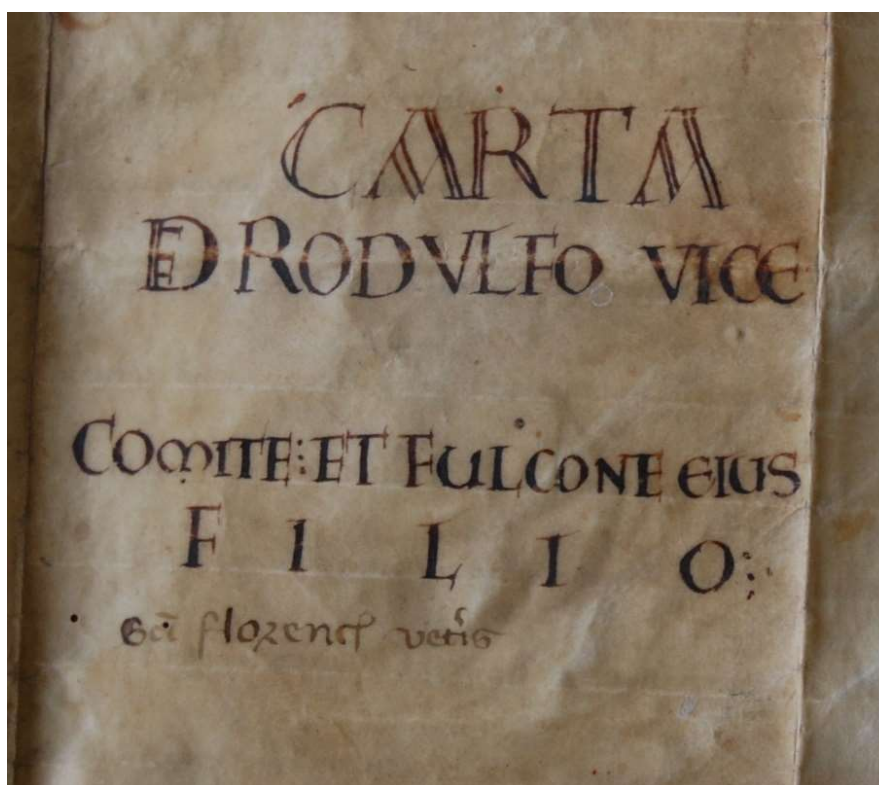 CARTA
DE RODVLFO VICE
COMITE: ET FULCONE EIUS
FILIO:
Sci florencij veteris